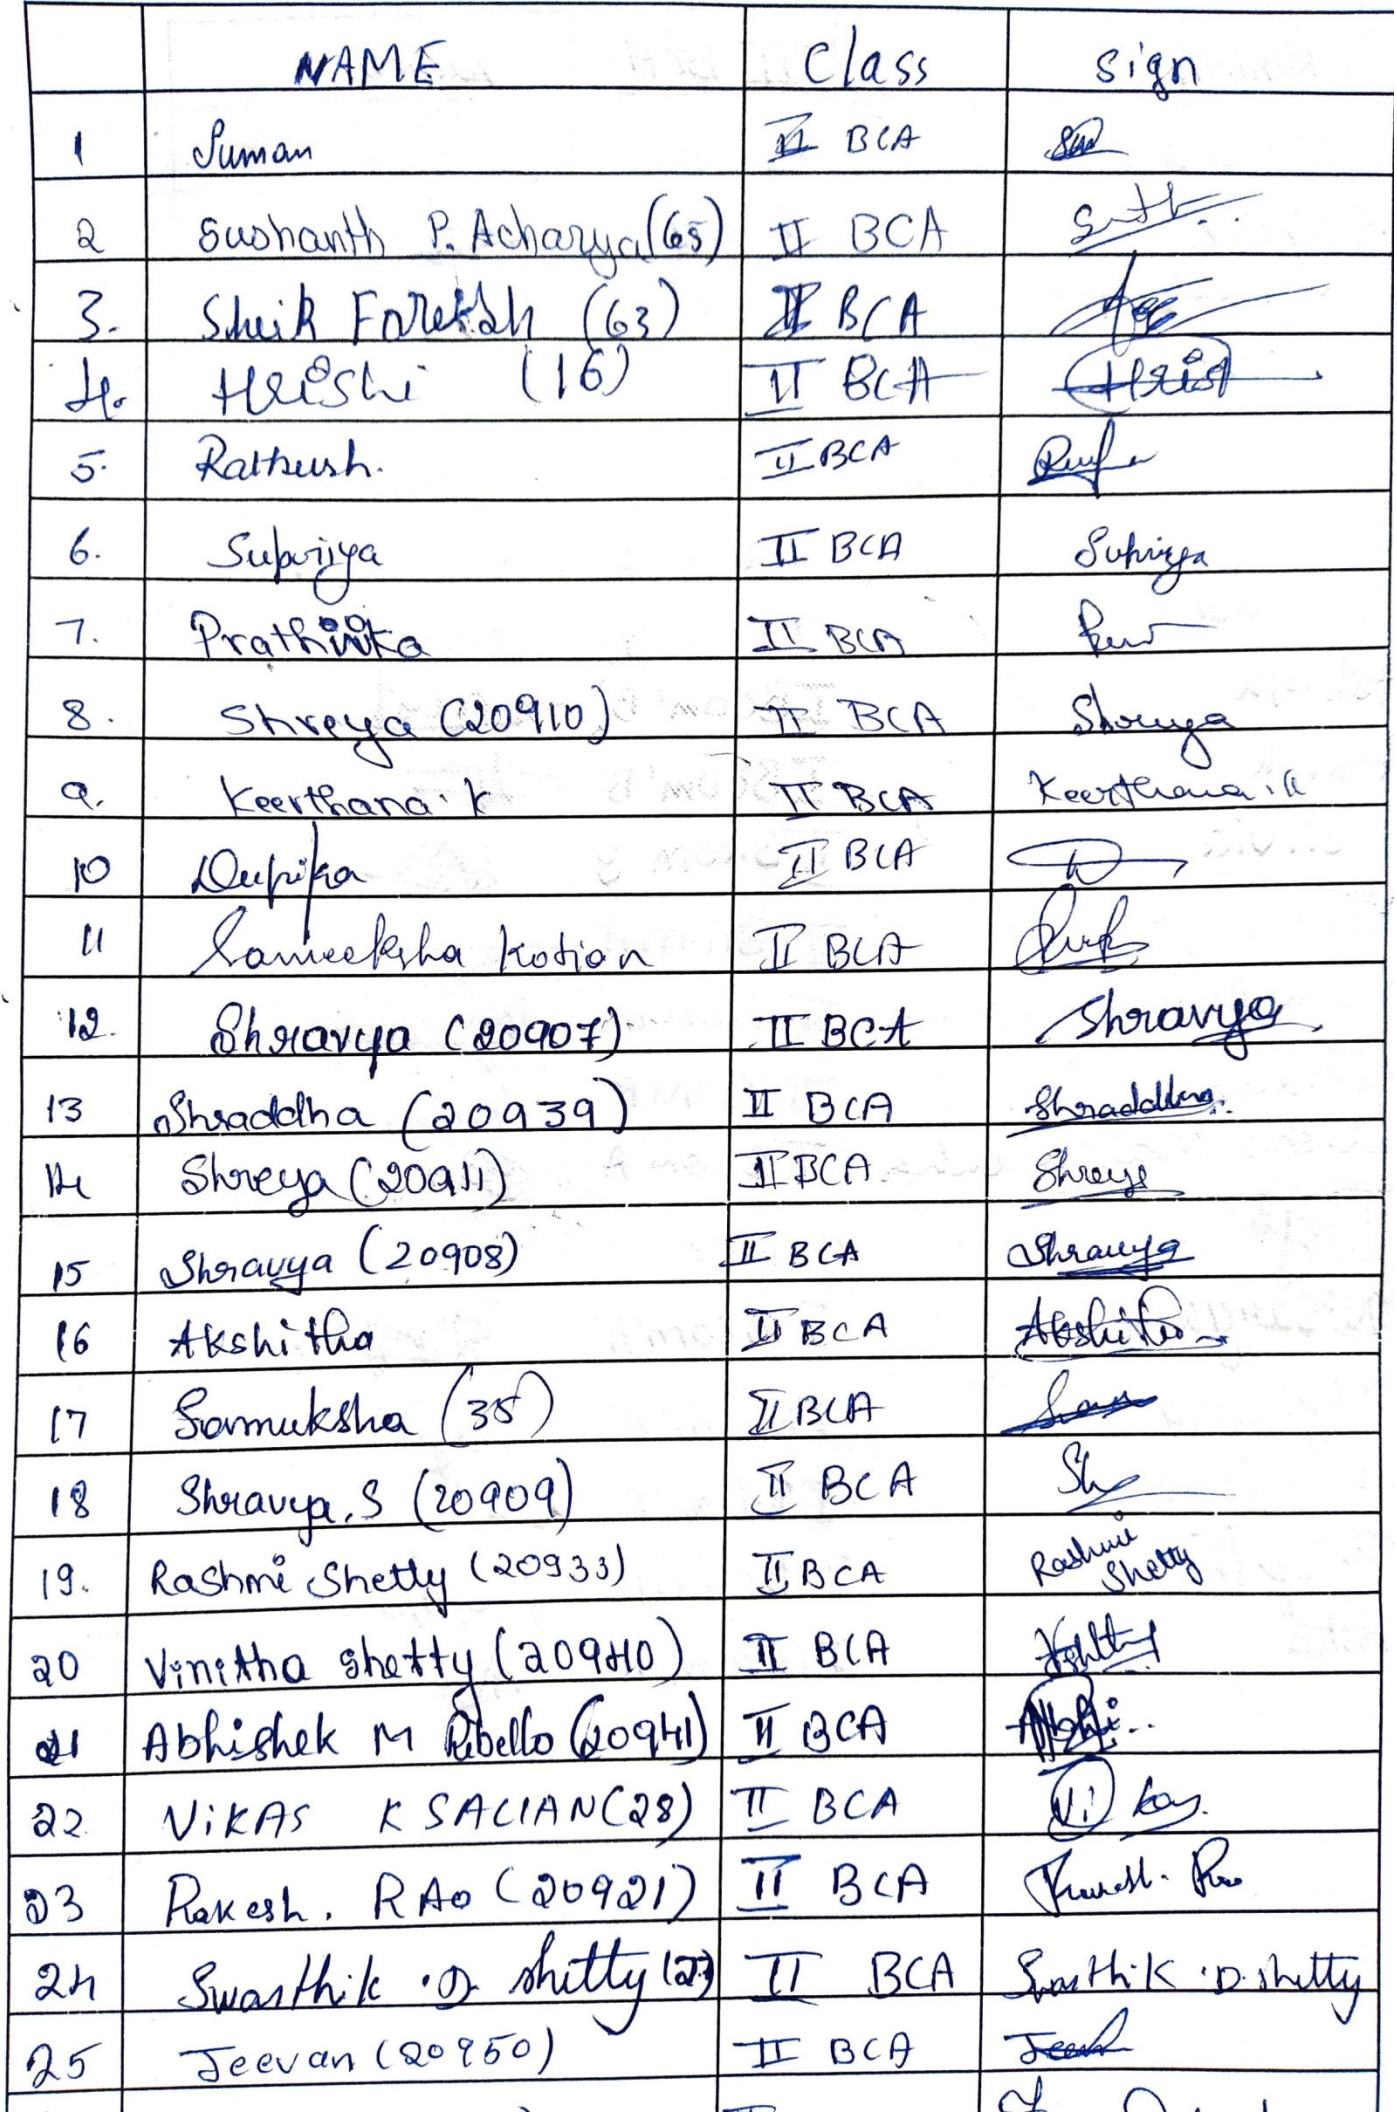 NAME Class Sign
1 Suman II BCA
2 Sushanth P. Acharya (65) II BCA
3. Sheik (63) II BCA
4. Hrishi (16) II BCA Hrish
5. Rathush. II BCA
6. Supriya II BCA Supriya
7. Prathika II BCA
8. Shreya (20910) II BCA Shreya
9. Keerthana. K II BCA Keerthana. K
10 Deepika II BCA
11 Sameeksha Kotian II BCA
12. Shravya (20907) II BCA Shravya
13 Shraddha (20939) II BCA Shraddha
14 Shreya (20911) II BCA Shreya
15 Shravya (20908) II BCA Shravya
16 Akshitha II BCA Akshitha
17 Samuksha (35) II BCA
18 Shravya. S (20909) II BCA Sh
19. Rashmi Shetty (20933) II BCA Rashmi Shetty
20 Vinitha Shetty (20940) II BCA
21 Abhishek M Ribello (20941) II BCA Abhi..
22. VIKAS K SALIAN (28) II BCA Vikas.
23 Rakesh. RAO (20921) II BCA
24 Swasthik .D. Shetty (27) II BCA Swasthik .D. Shetty
25 Jeevan (20950) II BCA